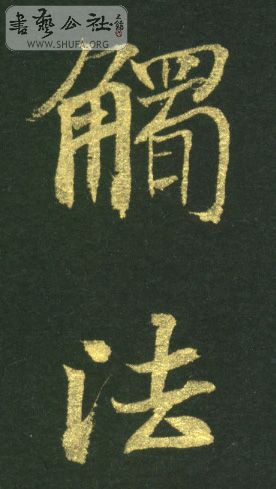 書藝公社
WWW.SHUFA.ORG
觸
法